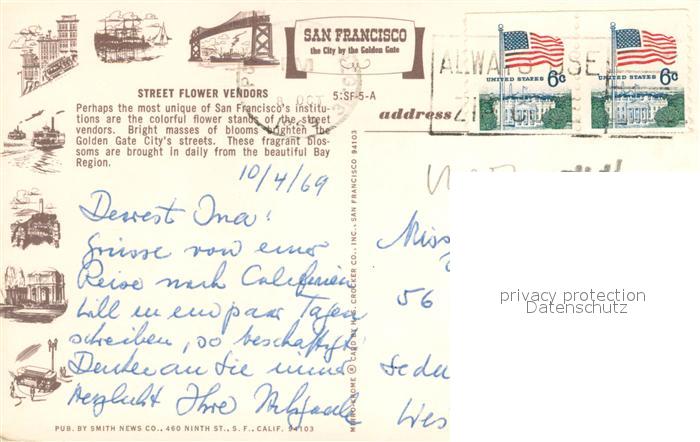 SAN FRANCISCO
the City by the Golden Gate
STREET FLOWER VENDORS
5:SF-5-A
Perhaps the most unique of San Francisco's institu-
tions are the colorful flower stands of the street
vendors. Bright masses of blooms brighten the
Golden Gate City's streets. These fragrant blos-
soms are brought in daily from the beautiful Bay
Region.
address
ALWAYS USE
ZIP
OCT
UNITED STATES 6c
UNITED STATES 6c
10/4/69
Dearest Ina:
Grüsse von einer
Reise nach Californien
Will in ein paar Tagen
schreiben, so beschäftigt
Denke an Sie immer
herzlichst Ihre
Miss
56
privacy protection
Datenschutz
MIRRO-KROME ® CARD BY H.S. CROCKER CO., INC., SAN FRANCISCO 94103
PUB. BY SMITH NEWS CO., 460 NINTH ST., S. F., CALIF. 94103